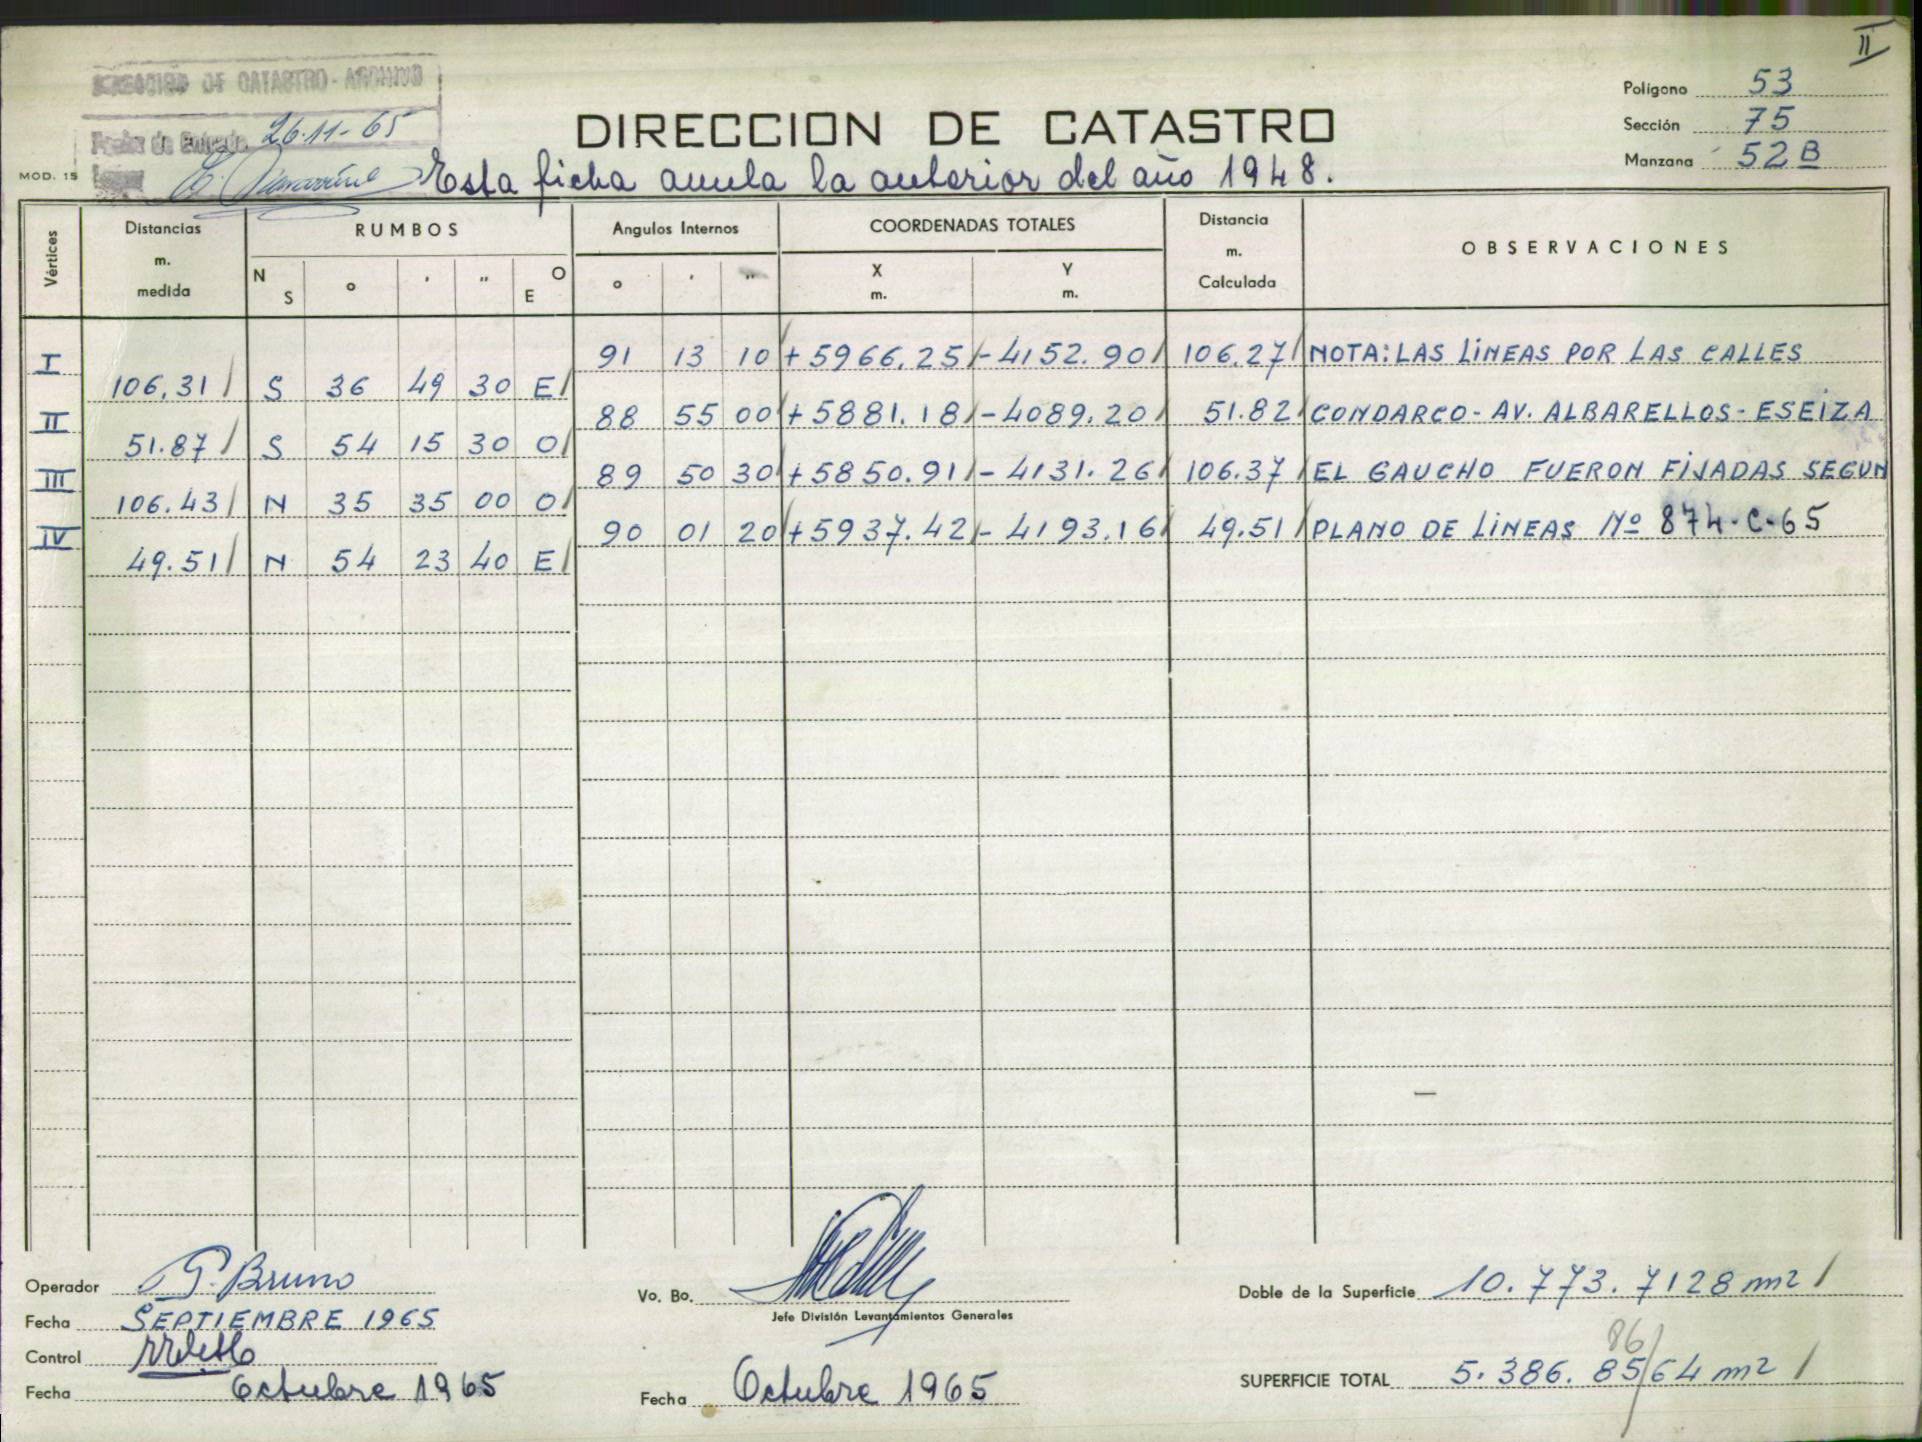 II
DIRECCION DE CATASTRO - ARCHIVO
Fecha de Entrada 26-11-65
MOD. 15
DIRECCION DE CATASTRO
Esta ficha anula la anterior del año 1948.
Polígono 53
Sección 75
Manzana 52 B
Vértices Distancias m. medida RUMBOS Angulos Internos COORDENADAS TOTALES Distancia m. Calculada OBSERVACIONES
N S o ' " E O o ' " X m. Y m.
I 91 13 10 + 5966.25 - 4152.90 106.27 NOTA: LAS LINEAS POR LAS CALLES
106.31 S 36 49 30 E
II 88 55 00 + 5881.18 - 4089.20 51.82 CONDARCO - AV. ALBARELLOS - ESEIZA
51.87 S 54 15 30 O
III 89 50 30 + 5850.91 - 4131.26 106.37 EL GAUCHO FUERON FIJADAS SEGUN
106.43 N 35 35 00 O
IV 90 01 20 + 5937.42 - 4193.16 49.51 PLANO DE LINEAS Nº 874-C-65
49.51 N 54 23 40 E
Operador G. Bruno
Fecha SEPTIEMBRE 1965
Control
Fecha Octubre 1965
Vo. Bo.
Jefe División Levantamientos Generales
Fecha Octubre 1965
Doble de la Superficie 10.773.7128 m2
86
SUPERFICIE TOTAL 5.386.85/64 m2